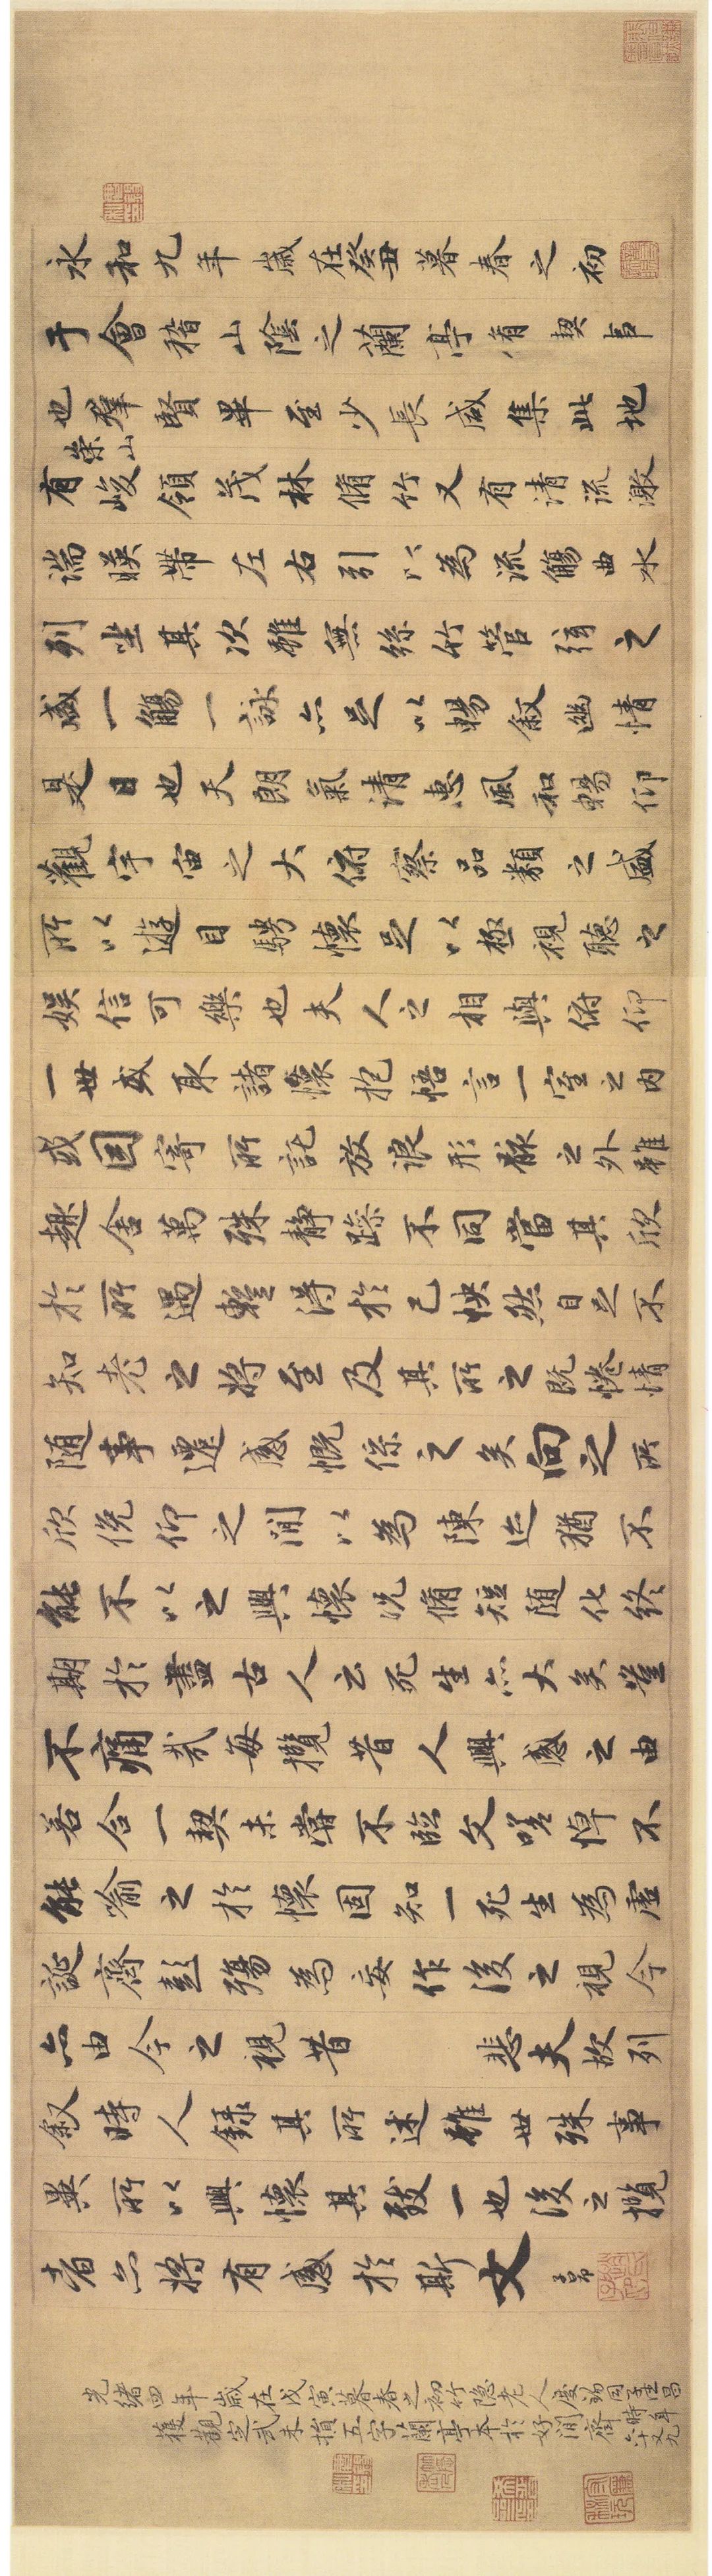 永和九年歲在癸丑暮春之初
于會稽山陰之蘭亭脩禊事
也群賢畢至少長咸集此地
有崇山峻領茂林脩竹又有清流激
湍暎帶左右引以為流觴曲水
列坐其次雖無絲竹管弦之
盛一觴一詠亦足以暢敘幽情
是日也天朗氣清惠風和暢仰
觀宇宙之大俯察品類之盛
所以遊目騁懷足以極視聽之
娛信可樂也夫人之相與俯仰
一世或取諸懷抱悟言一室之內
或因寄所託放浪形骸之外雖
趣舍萬殊靜躁不同當其欣
於所遇暫得於己怏然自足不
知老之將至及其所之既惓情
隨事遷感慨係之矣向之所
欣俛仰之間以為陳迹猶不
能不以之興懷況脩短隨化終
期於盡古人云死生亦大矣豈
不痛哉每攬昔人興感之由
若合一契未嘗不臨文嗟悼不
能喻之於懷固知一死生為虛
誕齊彭殤為妄作後之視今
亦由今之視昔 悲夫故列
敘時人錄其所述雖世殊事
異所以興懷其致一也後之攬
者亦將有感於斯文 子昂
光緒四年歲在戊寅暮春之初竹隱老人慶錫同子隆昌
獲觀定武未損五字蘭亭本於好閒齋 時年六十又九